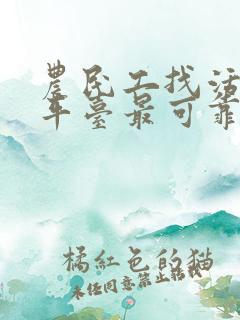 農民工找活
平臺最可靠
橘紅色的猫
未经同意禁止转载